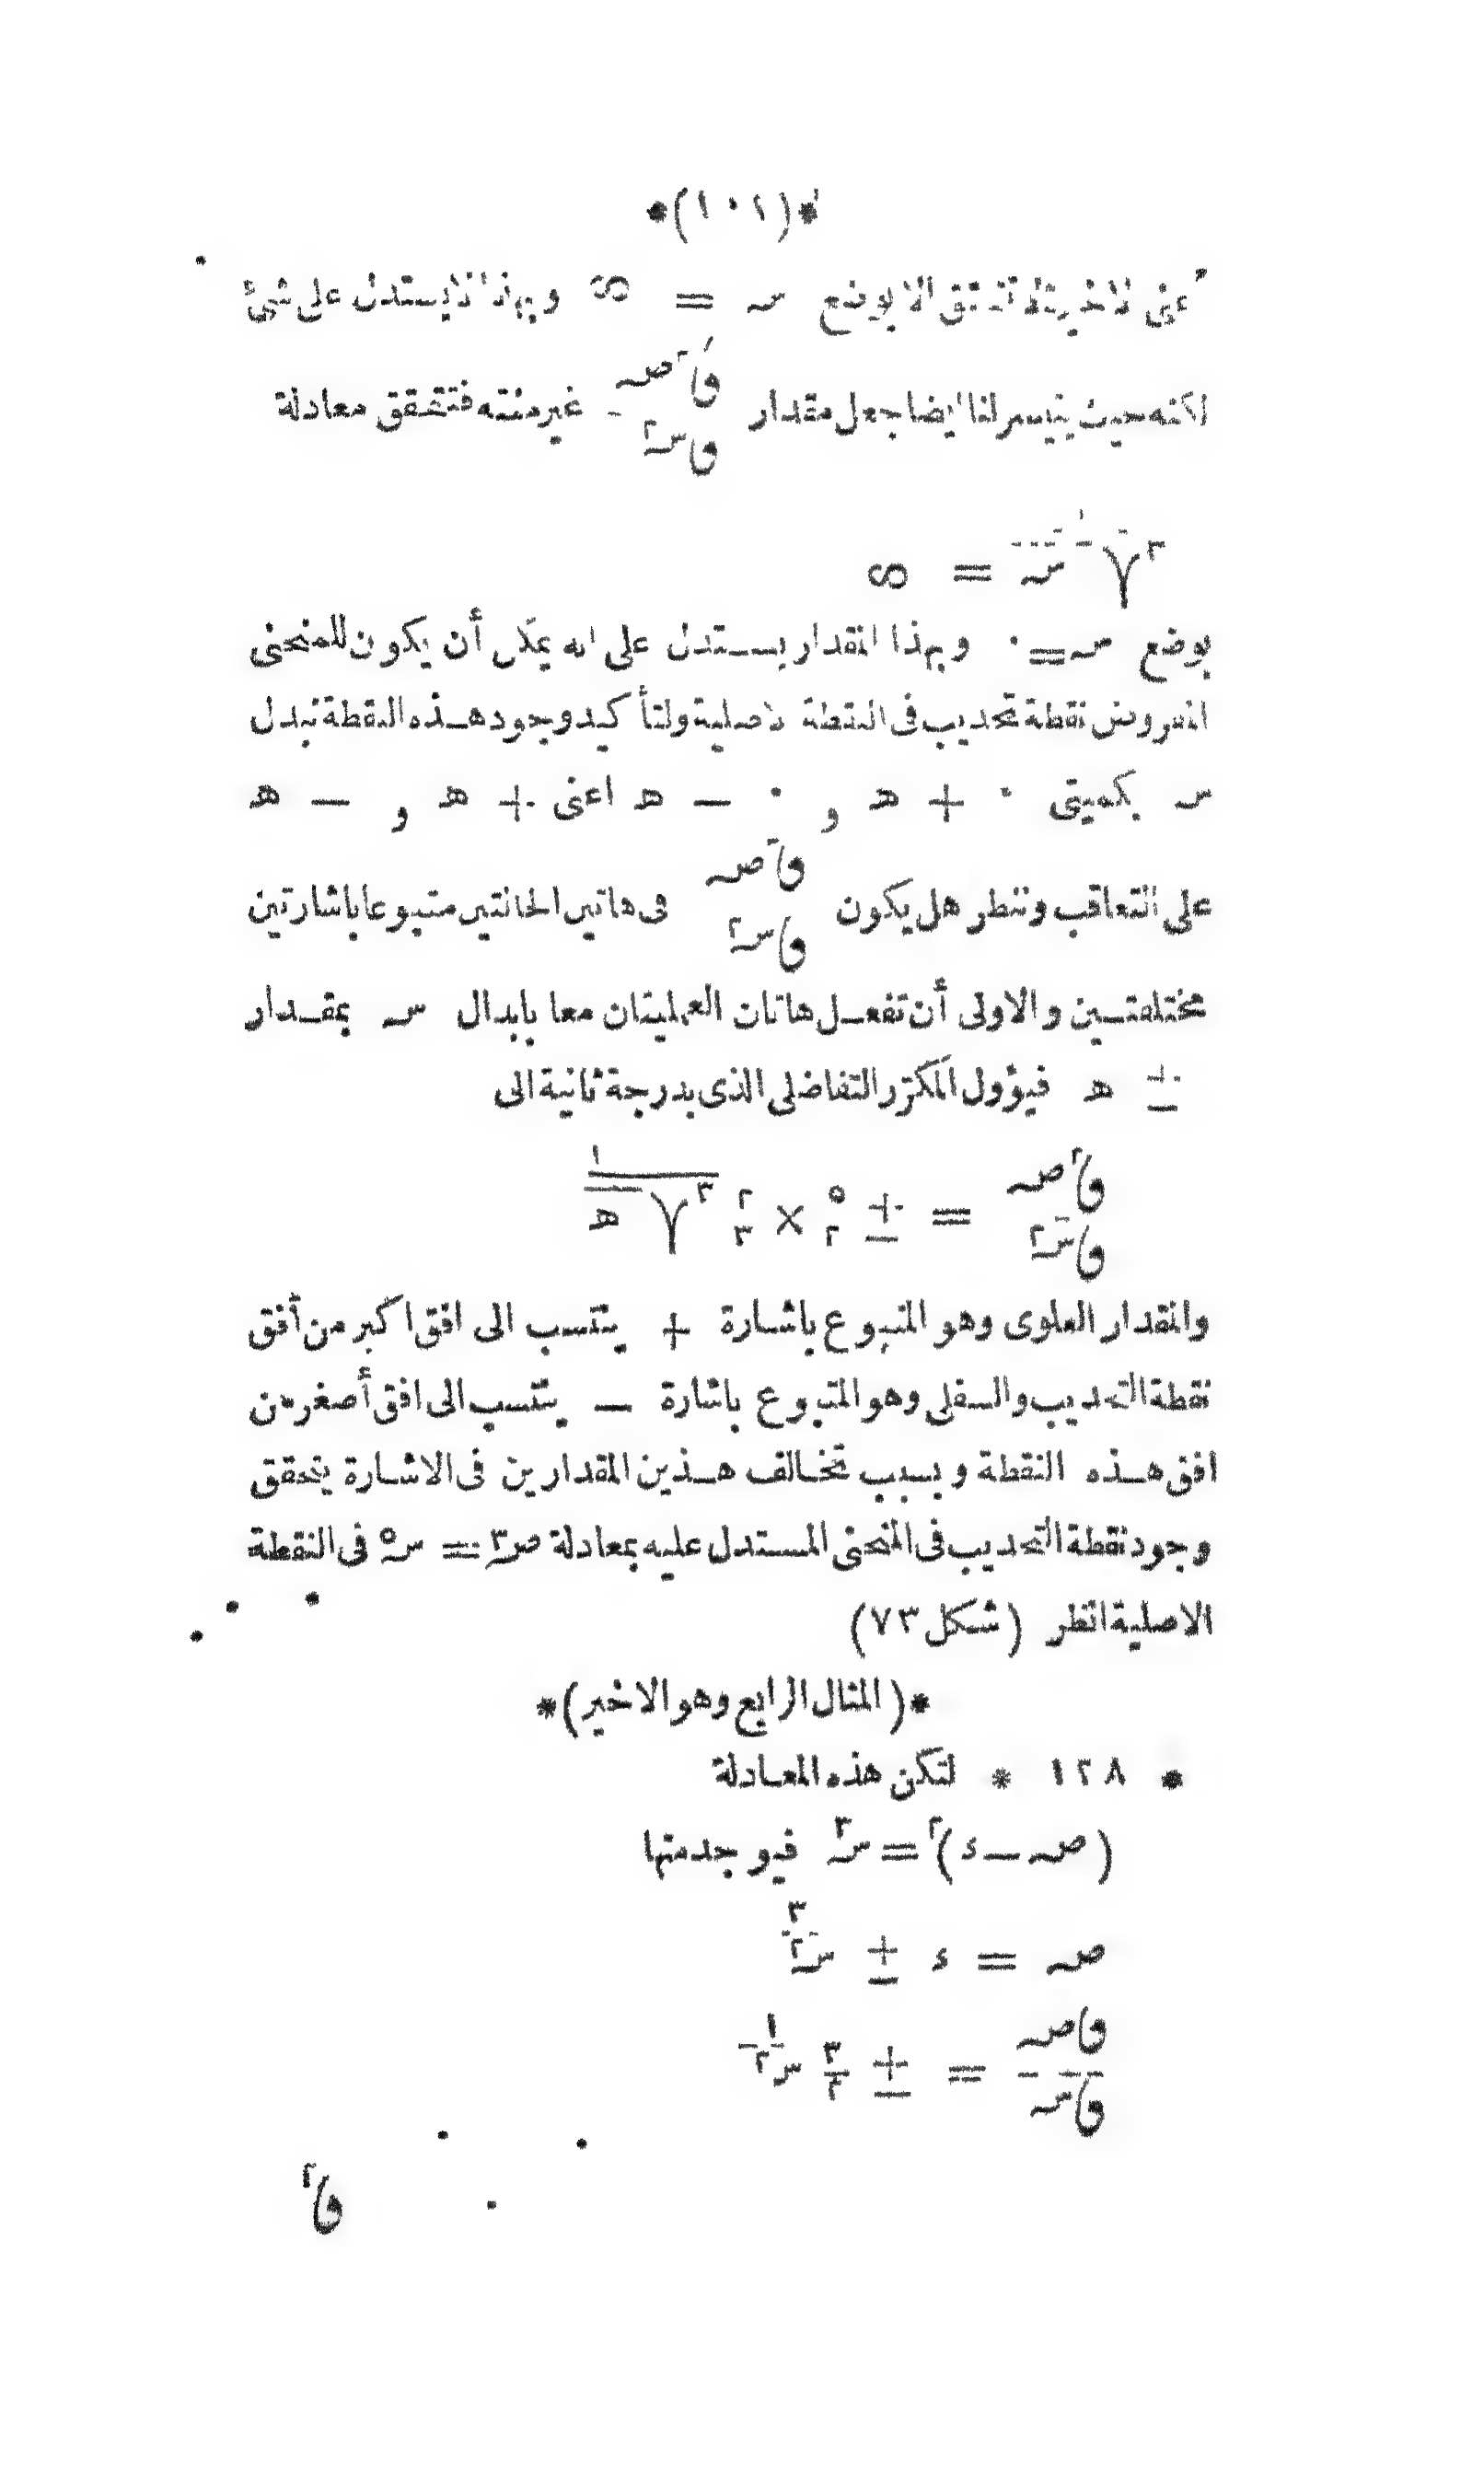 *(١٠١)*
لا تتحقق الا بوضع س = ∞ وبهذا لا يستدل على شئ
لكنه حيث يتيسر لنا ايضا جعل مقدار ق٢ص / ق س٢ غير منته فتتحقق معادلة
١ / ٣√س = ∞
بوضع س = ٠ وبهذا المقدار يستدل على انه يمكن أن يكون للمنحنى
المفروض نقطة تحديب فى النقطة الاصلية ولتأكيد وجود هذه النقطة نبدل
س بكميتى ٠ + ھ و ٠ — ھ اعنى + ھ و — ھ
على التعاقب وننظر هل يكون ق٢ص / ق س٢ فى هاتين الحالتين متبوعا باشارتين
مختلفتين والاولى أن تفعل هاتان العمليتان معا بابدال س بمقدار
± ھ فيؤول المكرر التفاضلى الذى بدرجة ثانية الى
ق٢ص / ق س٢ = ± ٥/٢ × ٢/٣ ١ / ٣√ھ
والمقدار العلوى وهو المتبوع باشارة + ينتسب الى افق اكبر من أفق
نقطة التحديب والسفلى وهو المتبوع باشارة — ينتسب الى افق أصغر من
افق هذه النقطة وبسبب تخالف هذين المقدارين فى الاشارة يتحقق
وجود نقطة التحديب فى المنحنى المستدل عليه بمعادلة ص٣ = س٥ فى النقطة
الاصلية انظر (شكل ٧٣)
*( المثال الرابع وهو الاخير )*
* ١٢٨ * لتكن هذه المعادلة
(ص — ء)٢ = س٣ فيوجد منها
ص = ء ± س٣/٢
ق ص / ق س = ± ٣/٢ س١/٢
ق٢